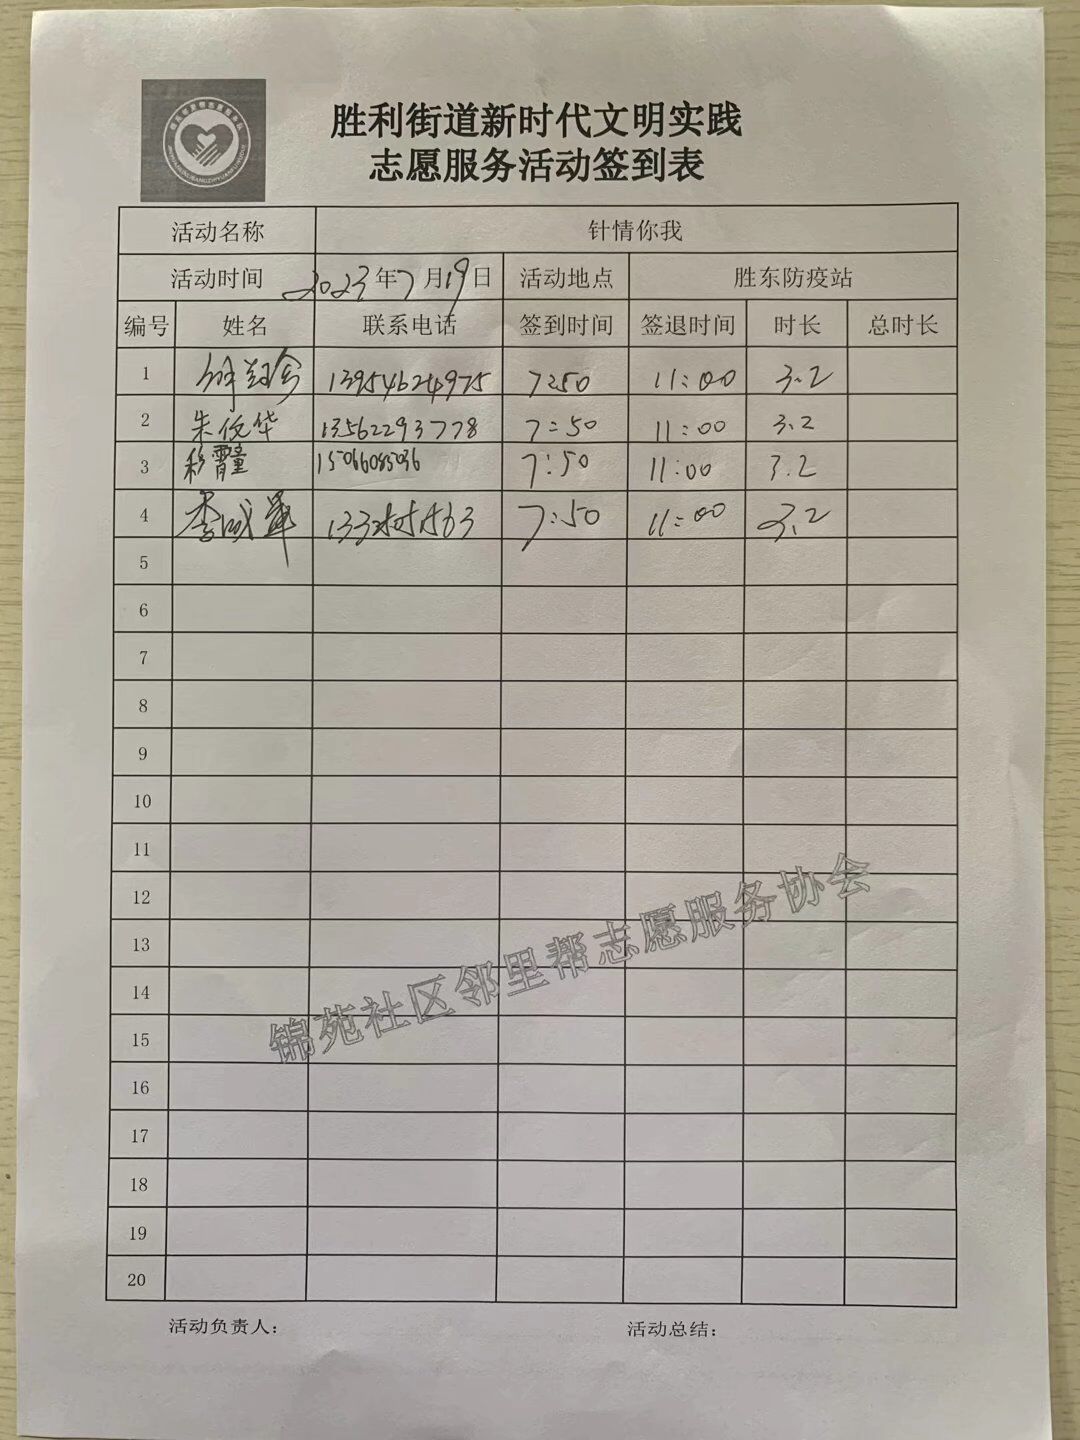 胜利街道新时代文明实践
志愿服务活动签到表
活动名称 针情你我
活动时间 2023年7月19日 活动地点 胜东防疫站
编号 姓名 联系电话 签到时间 签退时间 时长 总时长
1 13954624975 7:50 11:00 3.2
2 朱俊华 13562293778 7:50 11:00 3.2
3 穆霄童 15066085036 7:50 11:00 3.2
4 7:50 11:00 3.2
5
6
7
8
9
10
11
12
13
14
15
16
17
18
19
20
锦苑社区邻里帮志愿服务协会
活动负责人： 活动总结：